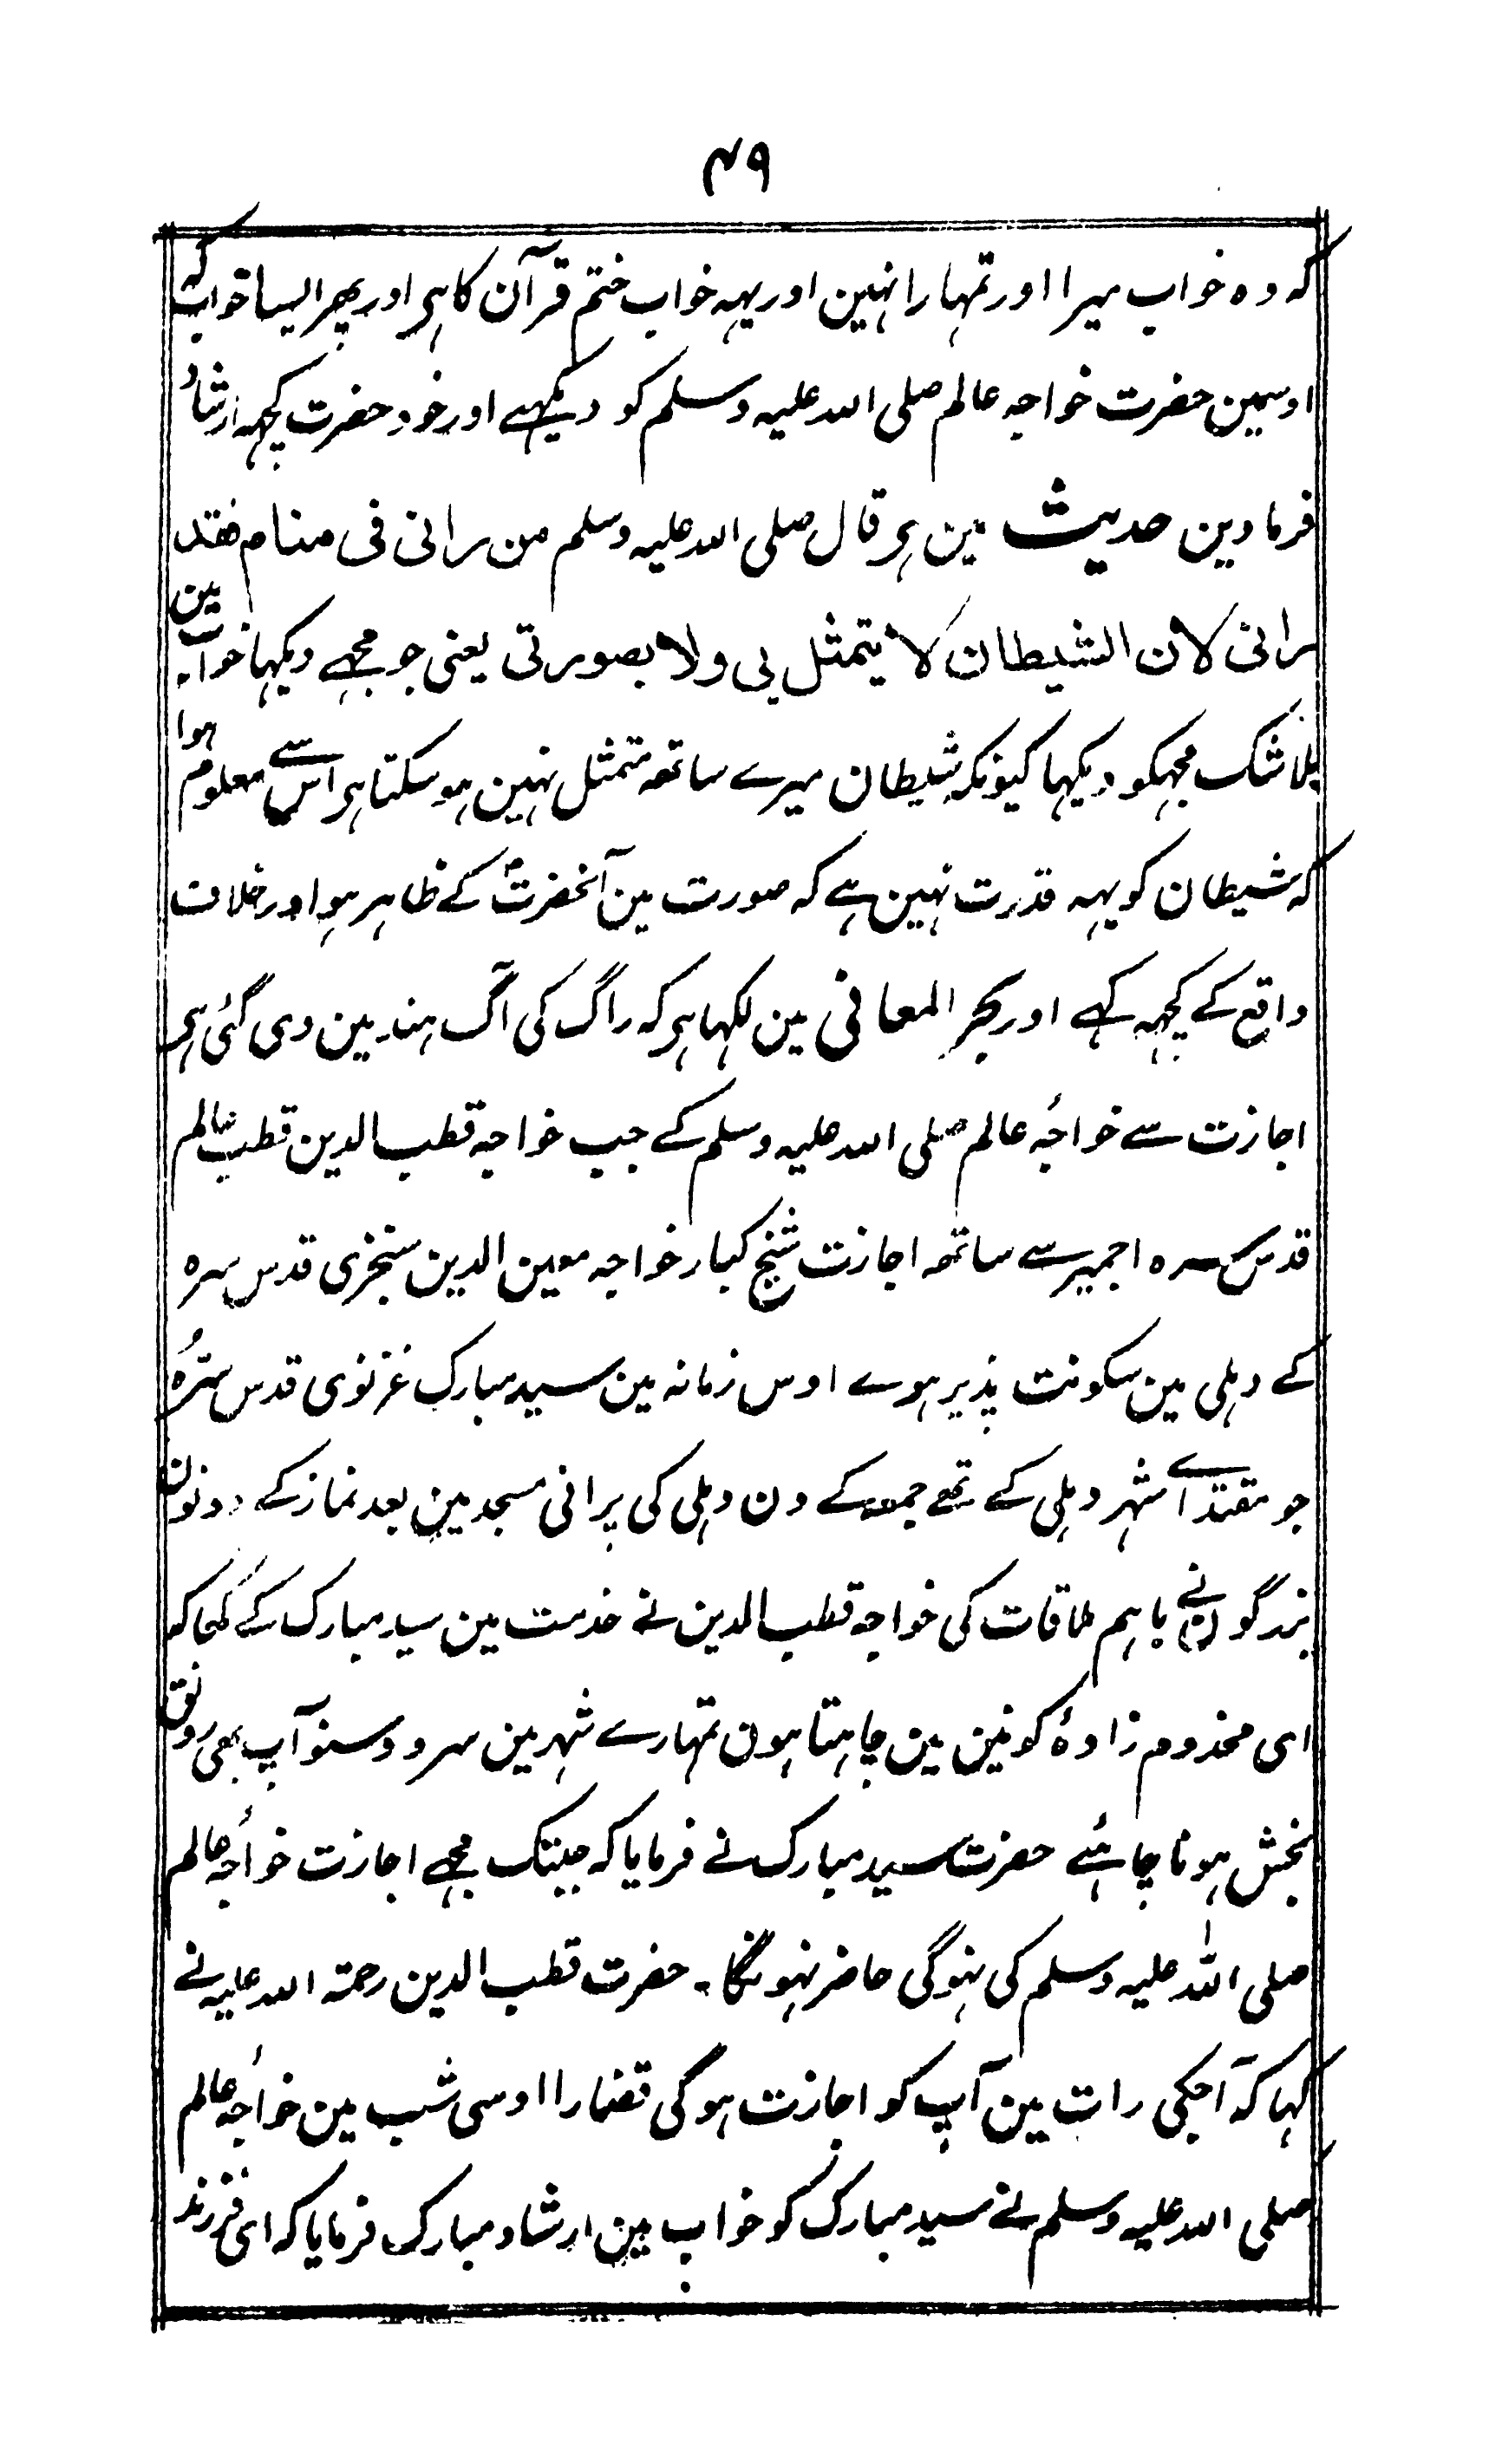 ۴۹
کہ وہ خواب میرا اور تمہارا نہین اور یہہ خواب ختم قرآن کا ہی اور پھر ایسا خواب کہ
اوسمین حضرت خواجہ عالم صلی اللہ علیہ وسلم کو دیکہے اور خود حضرت کچہہ ارشاد
فرمادین حدیث مین ہی قال صلی اللہ علیہ وسلم من رانی فی منام فقد
رانی لان الشیطان لا یتمثل بی ولا بصورتی یعنی جو مجہے دیکہا خواب مین
بلا شک مجہکو دیکہا کیونکہ شیطان میرے ساتھ متمثل نہین ہو سکتا ہی اس سے معلوم ہوا
کہ شیطان کو یہہ قدرت نہین ہے کہ صورت مین آنحضرتؐ کے ظاہر ہو اور خلاف
واقع کے کچہہ کہے اور بحر المعانی مین لکہا ہی کہ راگ کی آگ ہند مین دی گئی ہی
اجازت سے خواجۂ عالم صلی اللہ علیہ وسلم کے جب خواجہ قطب الدین قطب عالم
قدس سرہ اجمیر سے ساتھ اجازت شیخ کبار خواجہ معین الدین سنجری قدس سرہ
کے دہلی مین سکونت پذیر ہوے اوس زمانہ مین سید مبارک غزنوی قدس سرّہُ
جو مقتداے شہر دہلی کے تھے جمعہ کے دن دہلی کی پرانی مسجد مین بعد نماز کے دونون
بزرگون نے باہم ملاقات کی خواجہ قطب الدین نے خدمت مین سید مبارک کے کہا کہ
ای مخدوم زادۂ کونین مین چاہتا ہون تمہارے شہر مین سرود سنو آپ بھی رونق
بخش ہونا چاہئے حضرت سید مبارک نے فرمایا کہ جبتک مجہے اجازت خواجۂ عالم
صلی اللہ علیہ وسلم کی نہوگی حاضر نہونگا۔ حضرت قطب الدین رحمۃ اللہ علیہ نے
کہا کہ آجکی رات مین آپ کو اجازت ہوگی قضارا اوسی شب مین خواجۂ عالم
صلی اللہ علیہ وسلم نے سید مبارک کو خواب مین ارشاد مبارک فرمایا کہ ای فرزند